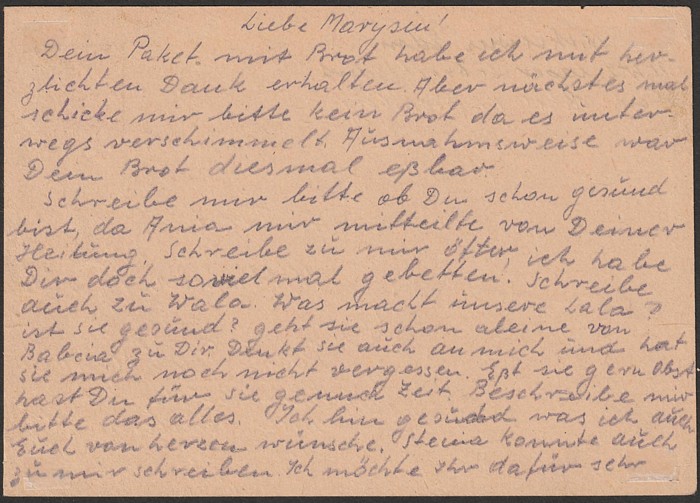 Liebe Marysiu!
Dein Paket mit Brot habe ich mit her-
zlichten Dank erhalten. Aber nächstes mal
schicke mir bitte kein Brot da es unter-
wegs verschimmelt. Ausnahmsweise war
Dein Brot diesmal eßbar.
Schreibe mir bitte ob Du schon gesund
bist, da Ania mir mitteilte von Deiner
Heilung. Schreibe zu mir öfter, ich habe
Dir doch soviel mal gebetten! Schreibe
auch zu Wala. Was macht unsere Lala?
ist sie gesund? geht sie schon aleine von
Babcia zu Dir. Denkt sie auch an mich und hat
sie mich noch nicht vergessen. Eßt sie gern Obst
hast Du für sie genug Zeit. Beschreibe mir
bitte das alles. Ich bin gesund was ich auch
Euch von herzen wünsche. Stenia konnte auch
zu mir schreiben. Ich möchte Ihr dafür sehr